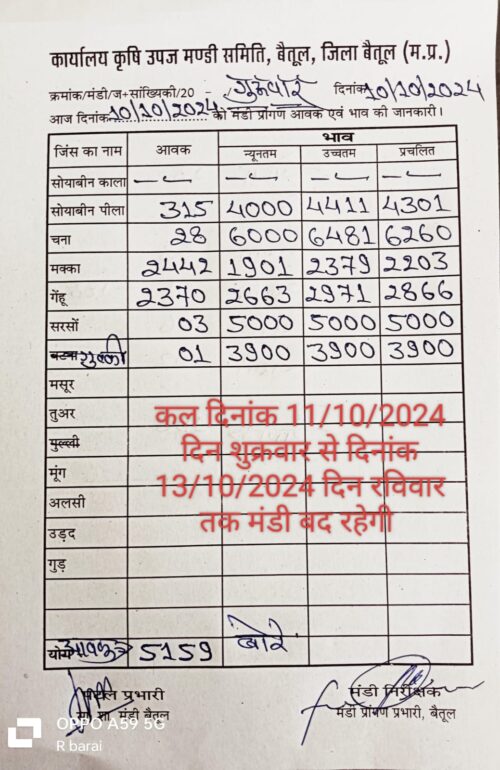 कार्यालय कृषि उपज मण्डी समिति, बैतूल, जिला बैतूल (म.प्र.)
क्रमांक/मंडी/ज+सांख्यिकी/20 - गुरूवार दिनांक 10/10/2024
आज दिनांक 10/10/2024 को मंडी प्रांगण आवक एवं भाव की जानकारी।
जिंस का नाम आवक भाव
न्यूनतम उच्चतम प्रचलित
सोयाबीन काला — — — —
सोयाबीन पीला 315 4000 4411 4301
चना 28 6000 6481 6260
मक्का 2442 1901 2379 2203
गेंहू 2370 2663 2971 2866
सरसों 03 5000 5000 5000
01 3900 3900 3900
मसूर
तुअर
मुल्ली
मूंग
अलसी
उड़द
गुड़
कल दिनांक 11/10/2024
दिन शुक्रवार से दिनांक
13/10/2024 दिन रविवार
तक मंडी बद रहेगी
योग आवक 5159 बोरे
प्रभारी मंडी निरीक्षक
मंडी बैतूल मंडी प्रांगण प्रभारी, बैतूल
OPPO A59 5G
R barai